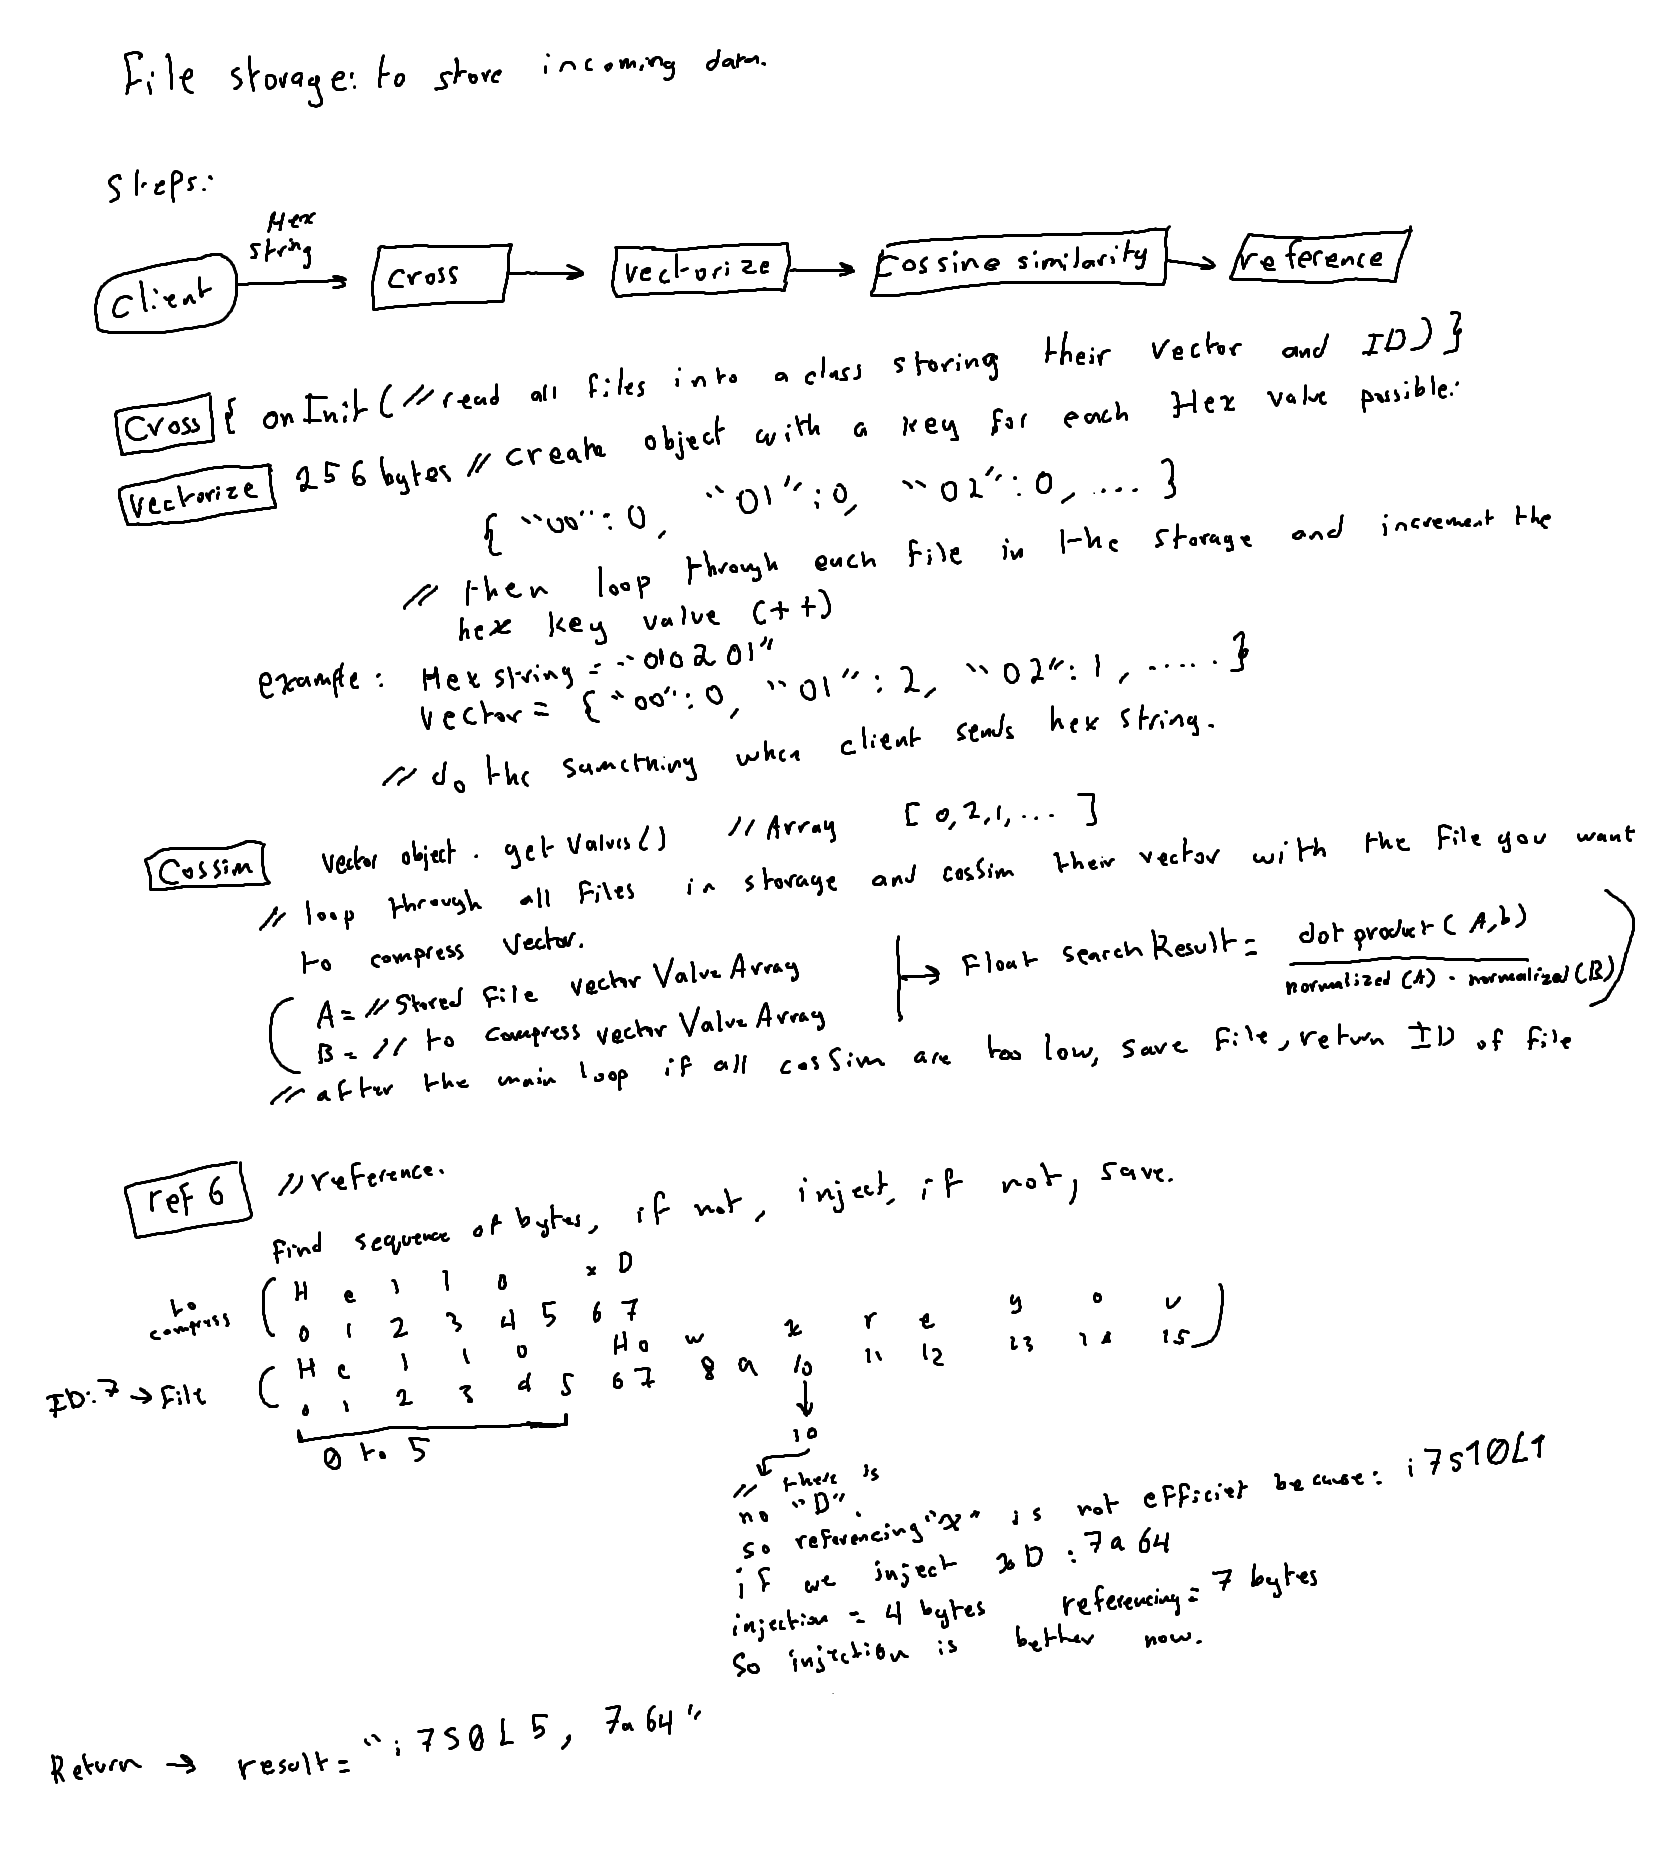 File storage: to store incoming data.
Steps:
Hex
string
Client
Cross
Vectorize
Cossine similarity
reference
Cross { onInit ( // read all files into a class storing their vector and ID) }
Vectorize 256 bytes // create object with a key for each Hex value possible:
{ "00": 0, "01": 0, "02": 0, .... }
// then loop through each file in the storage and increment the
hex key value (++)
example: Hex string = "010201"
vector = { "00": 0, "01": 2, "02": 1, ..... }
// do the samething when client sends hex string.
Cossim vector object. getValues() // Array [0,2,1,... ]
// loop through all files in storage and cossim their vector with the file you want
to compress vector.
A = // Stored file vector Value Array
B = // to compress vector Value Array
Float searchResult = dot product (A,b)
normalized (A) . normalized (B)
// after the main loop if all cosSim are too low, save file, return ID of file
ref 6 // reference.
Find sequence of bytes, if not, inject, if not, save.
to
compress
H e l l o x D
0 1 2 3 4 5 6 7
ID:7 → File
H e l l o H o w x r e y o u
0 1 2 3 4 5 6 7 8 9 10 11 12 13 14 15
0 to 5
10
// there is
no "D".
so referencing "x" is not efficiet because: i7s10L1
if we inject xD : 7a64
injection = 4 bytes referencing = 7 bytes
So injection is bether now.
Return → result = "i7S0L5, 7a64"